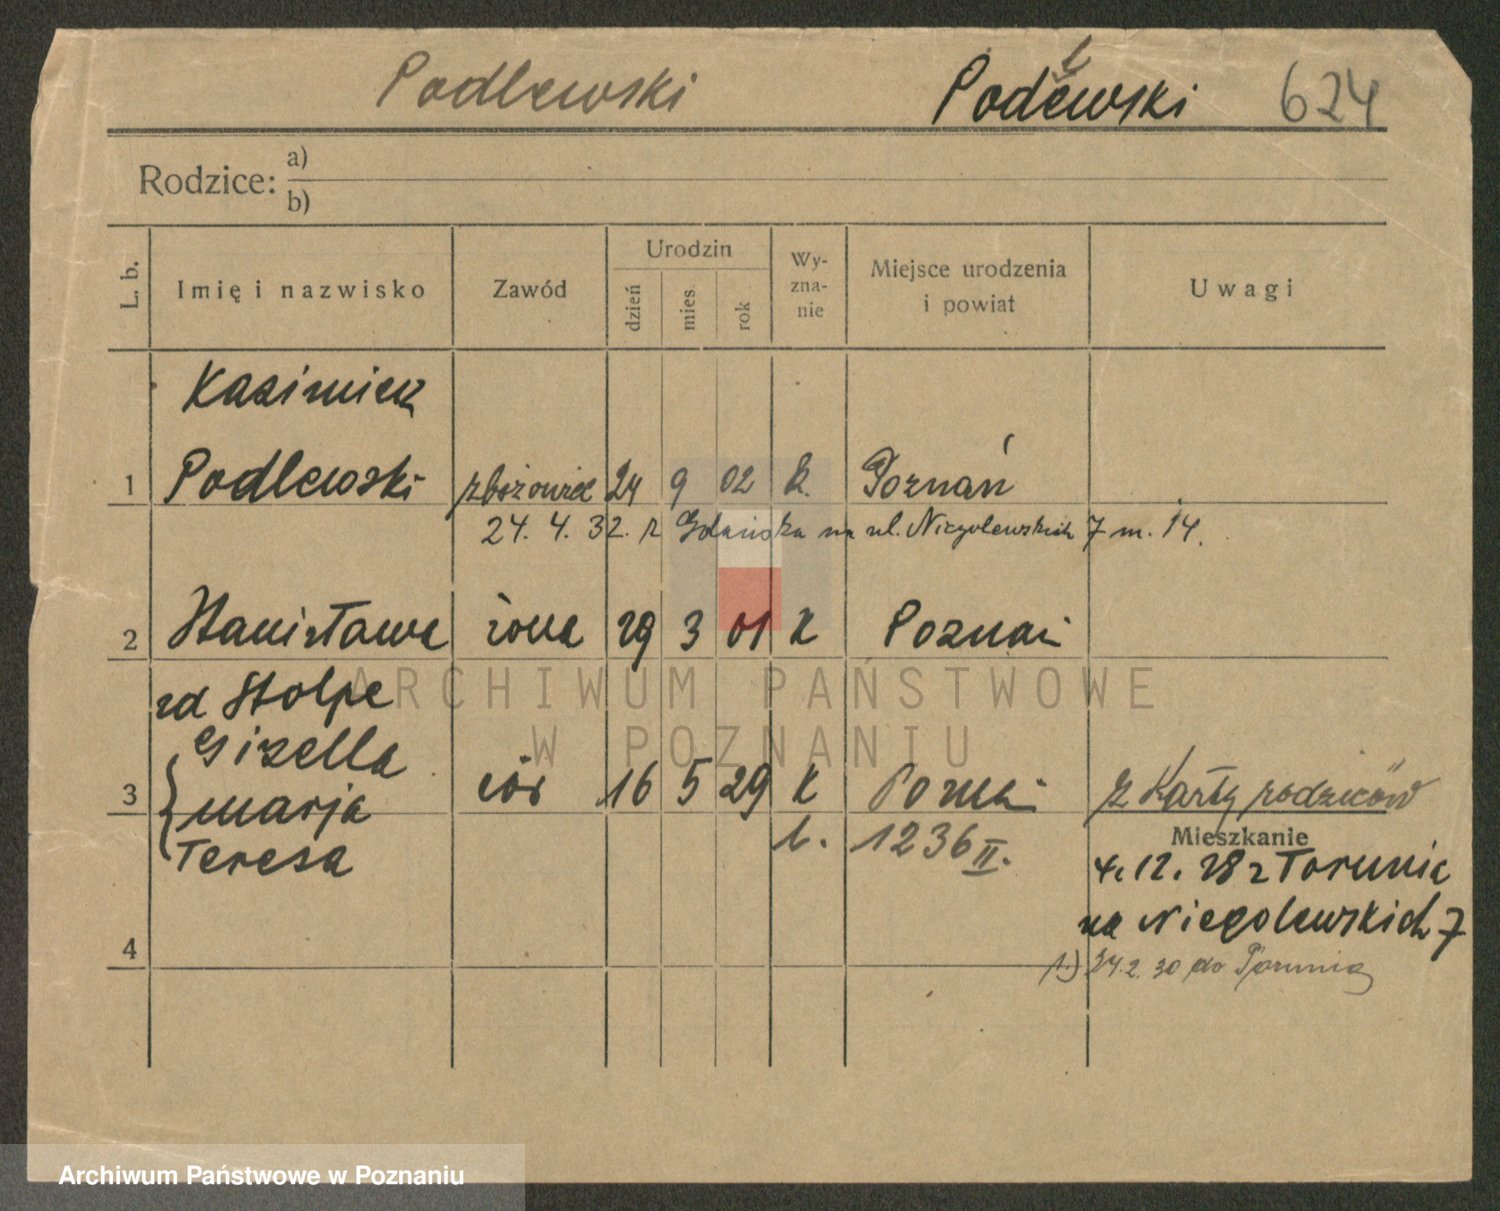 Podlewski Podlewski 624
Rodzice: a)
b)
L. b. Imię i nazwisko Zawód Urodzin dzień mies rok Wyznanie Miejsce urodzenia i powiat Uwagi
Kazimierz
1 Podlewski zbożowiec 24 9 02 k. Poznań
24. 4. 32. z Gdańska na ul. Niegolewskich 7 m. 14.
2 Stanisława żona 29 3 01 k Poznań
zd Stolpe
Gizella
3 marja cór 16 5 29 k Poznań z Karty rodziców
Teresa L. 1236 II. Mieszkanie
4. 12. 28 z Torunia
na Niegolewskich 7
4 1.) 24.2.30 do Torunia
ARCHIWUM PAŃSTWOWE
W POZNANIU
Archiwum Państwowe w Poznaniu